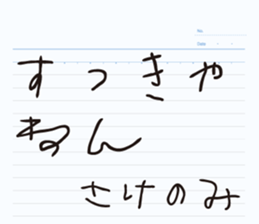 No.
Date
すつきや
ねん
さけのみ